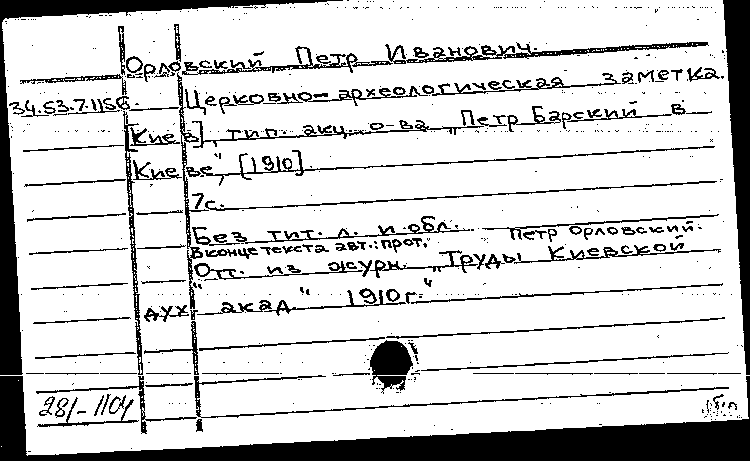 Орловский, Петр Иванович.
34.53.7.1156. Церковно-археологическая заметка.
[Киев], тип. акц. о-ва "Петр Барский в
Киеве", [1910].
7с.
Без тит. л. и обл.
В конце текста авт.: прот. Петр Орловский.
Отт. из журн. "Труды Киевской
дух. акад." 1910г."
281-1104